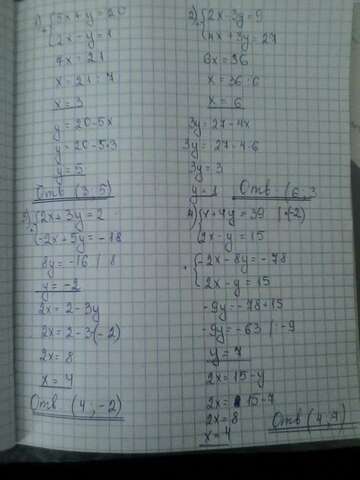 1) {5x+y=20
{2x-y=1
7x=21
x=21:7
x=3
y=20-5x
y=20-5·3
y=5
Отв (3;5)
2) {2x-3y=9
{4x+3y=27
6x=36
x=36:6
x=6
3y=27-4x
3y=27-4·6
3y=3
y=1
Отв (6;
3) {2x+3y=2
{-2x+5y=-18
8y=-16 | 8
y=-2
2x=2-3y
2x=2-3·(-2)
2x=8
x=4
Отв (4;-2)
4) {x+4y=39 | ·(-2)
{2x-y=15
{-2x-8y=-78
{2x-y=15
-9y=-78+15
-9y=-63 | :-9
y=7
2x=15-y
2x=15-7
2x=8
x=4
Отв (4;7)